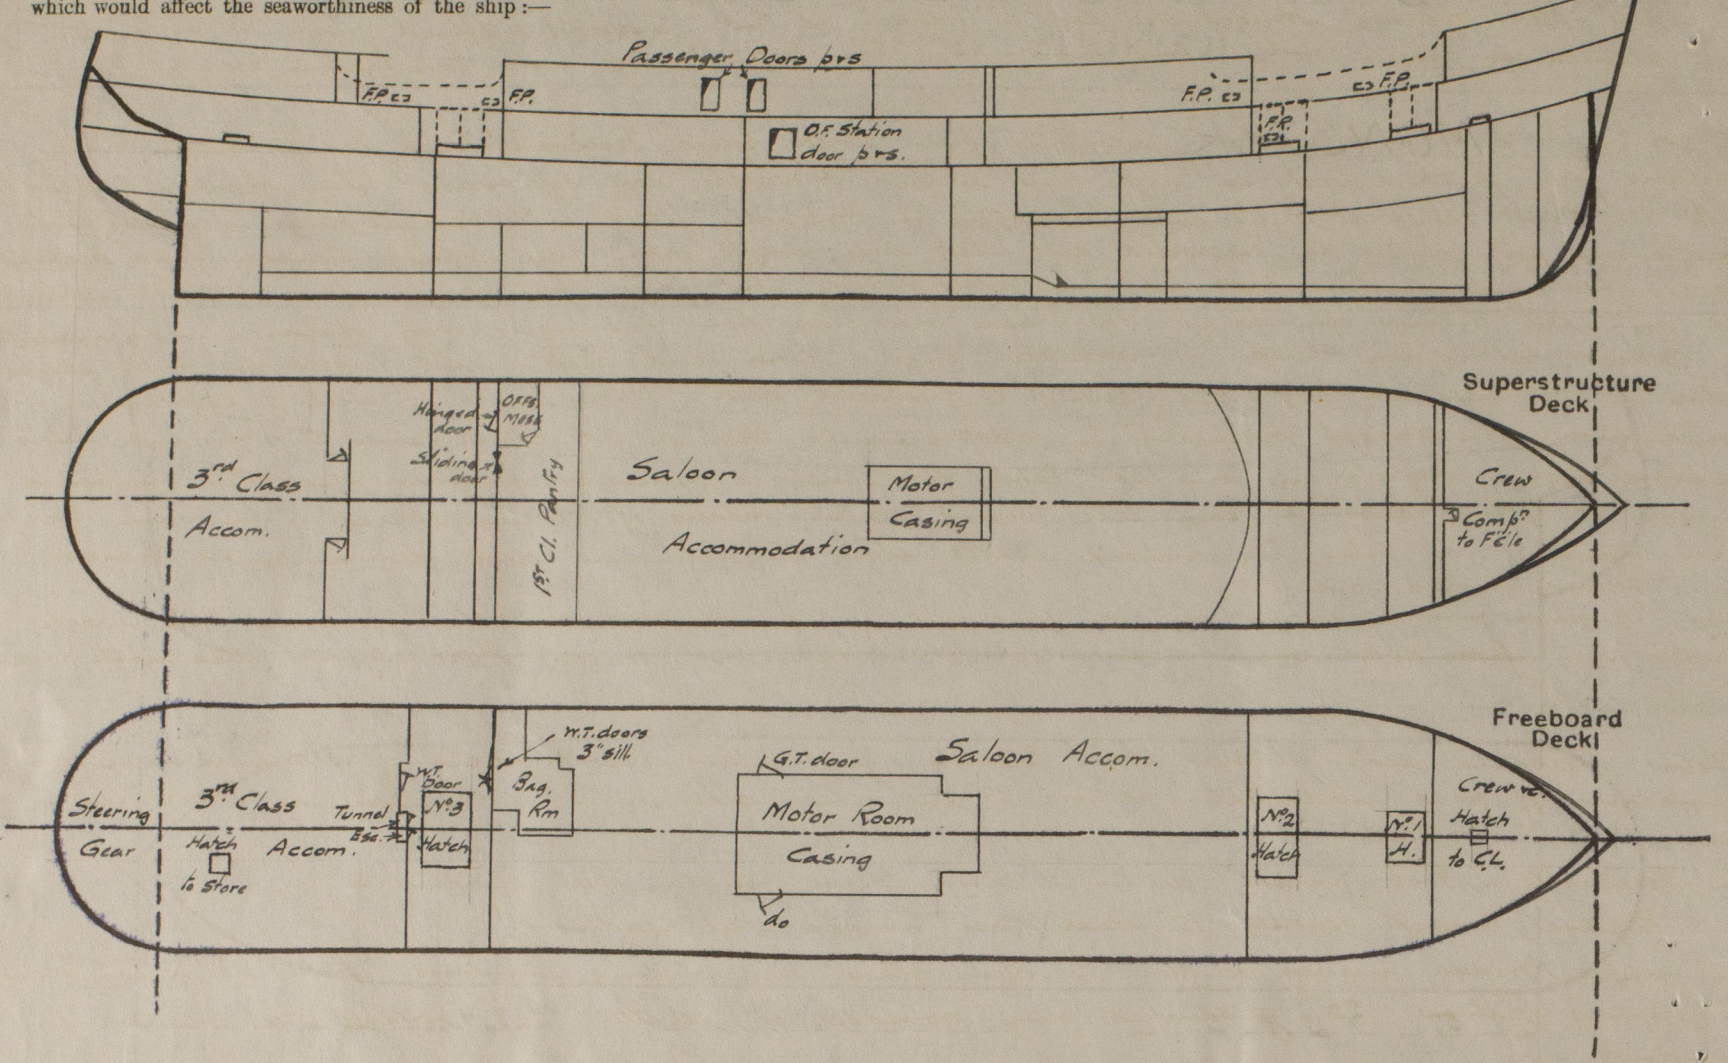 which would affect the seaworthiness of the ship :—
Passenger Doors p&s
F.P.
F.P.
F.P.
F.P.
O.F. Station
door p&s.
F.P.
Superstructure
Deck
Hinged
door
Offs.
Mess
Sliding
door
3rd Class
Accom.
1st Cl. Pantry
Saloon
Accommodation
Motor
Casing
Crew
Compn
to F'cle
Freeboard
Deck
W.T. doors
3" sill.
G.T. door
Saloon Accom.
W.T.
Door
Bag.
Rm
Steering
Gear
3rd Class
Accom.
Hatch
to Store
Tunnel
Esc.
No. 3
Hatch
Motor Room
Casing
do
No. 2
Hatch
No. 1
H.
Crew
Hatch
to C.L.